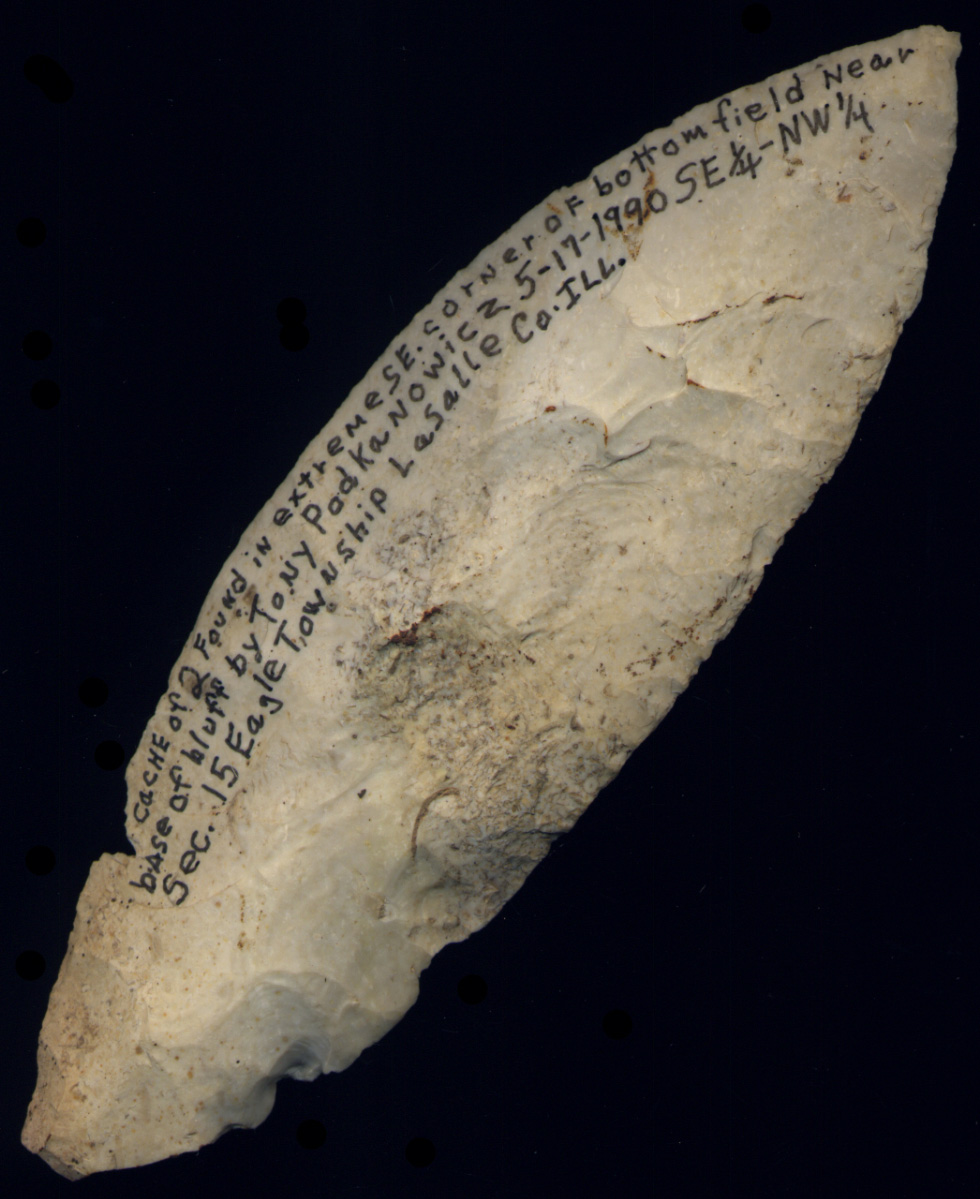 CaCHE of 2 FouNd iN extreMe SE. corNer OF bottom field Near
bAse of bluff by ToNy PodkaNowicz 5-17-1990 SE 1/4-NW 1/4
Sec. 15 Eagle TowNship LaSalle Co. ILL.